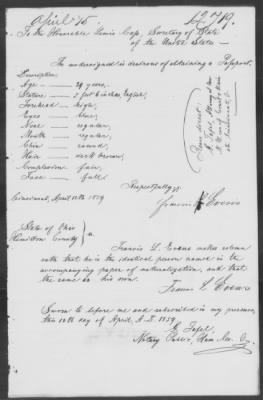 April 15.
12719.
To the Honorable Lewis Cass, Secretary of State
of the United States.
The undersigned is desirous of obtaining a Passport.
Description
Age — 29 years,
Stature — 5 feet 8 inches, English,
Forehead — high,
Eyes — blue,
Nose — regular,
Mouth — regular,
Chin — round,
Hair — dark brown,
Complexion — fair,
Face — full.
Respectfully yrs
Francis L Evans
Cincinnati, April 12th 1859
State of Ohio
Hamilton County } ss.
Francis L. Evans makes solemn
oath that he is the identical person named in the
accompanying paper of naturalization, and that
the same is his own.
Francis L Evans
Sworn to before me and subscribed in my presence,
this 12th day of April, A.D. 1859.
G. Tafel
Notary Public, Ham. Co. O.